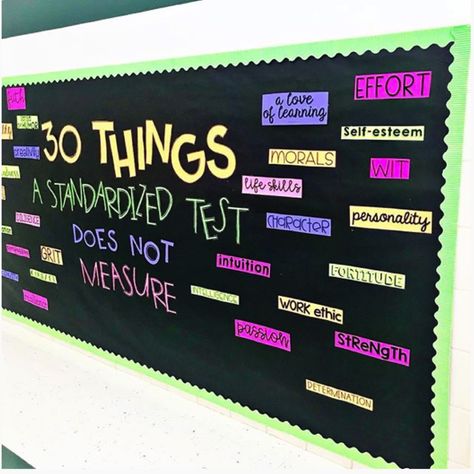 30 THINGS
A STANDARDIZED TEST
DOES NOT
MEASURE
a love
of learning
EFFORT
Self-esteem
MORALS
WIT
life skills
CHARACTER
personality
intuition
FORTITUDE
INTELLIGENCE
WORK ethic
PASSION
STReNGTH
DETERMINATION
CREATIVITY
GRIT